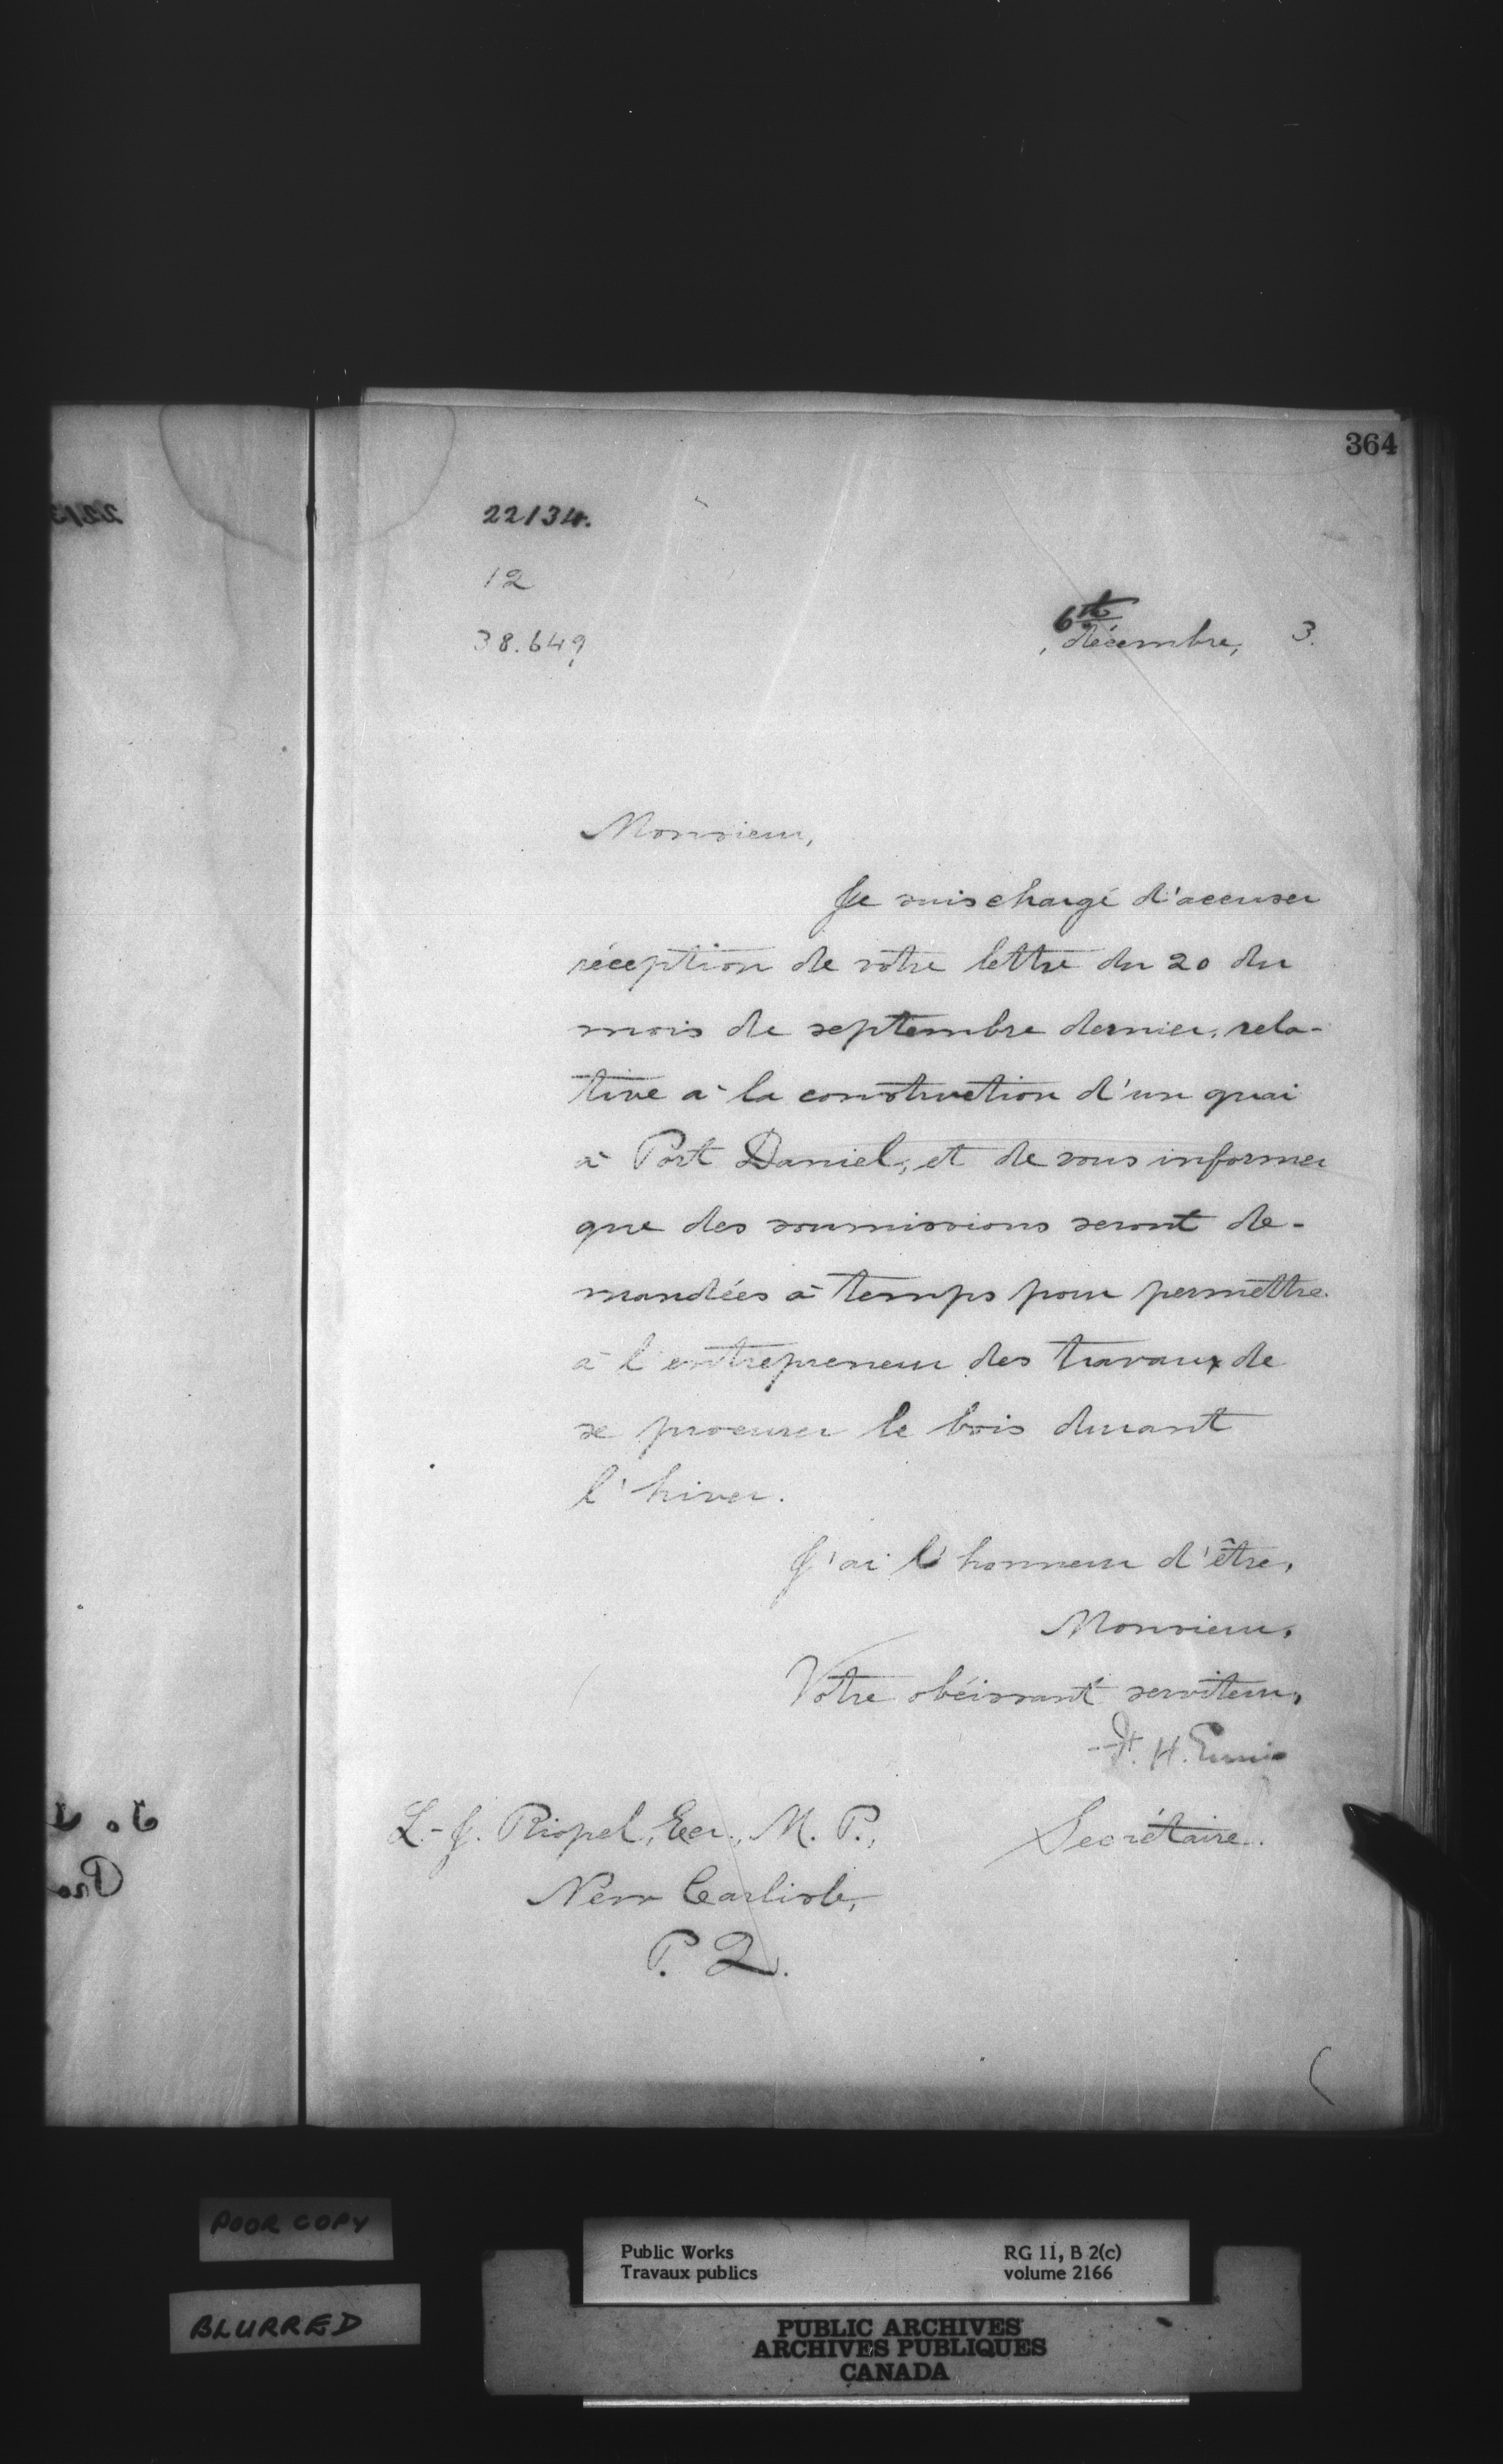 364
22134.
12
38.649
6th
décembre, 3.
Monsieur,
Je suis chargé d'accuser
réception de votre lettre du 20 du
mois de septembre dernier, rela-
tive à la construction d'un quai
à Port Daniel, et de vous informer
que des soumissions seront de-
mandées à temps pour permettre
à l'entrepreneur des travaux de
se procurer le bois durant
l'hiver.
J'ai l'honneur d'être,
Monsieur,
Votre obéissant serviteur,
F. H. Ennis
Secrétaire.
L.-J. Riopel, Ecr., M. P.,
New Carlisle,
P. Q.
POOR COPY
BLURRED
Public Works
Travaux publics
RG 11, B 2(c)
volume 2166
PUBLIC ARCHIVES
ARCHIVES PUBLIQUES
CANADA